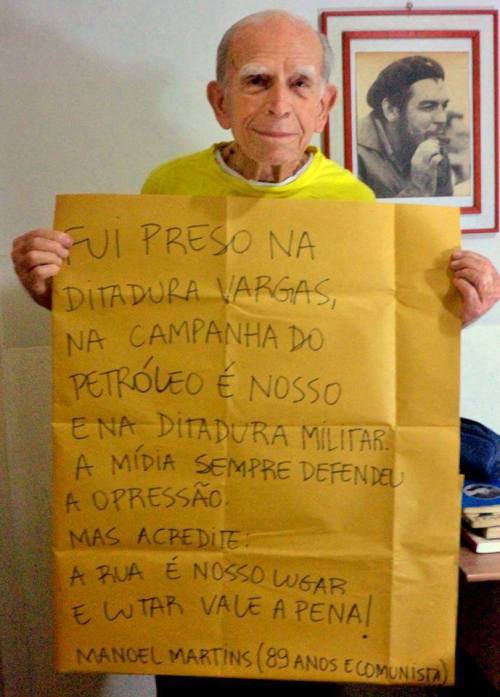 FUI PRESO NA
DITADURA VARGAS,
NA CAMPANHA DO
PETRÓLEO É NOSSO
E NA DITADURA MILITAR.
A MÍDIA SEMPRE DEFENDEU
A OPRESSÃO.
MAS ACREDITE:
A RUA É NOSSO LUGAR
E LUTAR VALE A PENA!
MANOEL MARTINS (89 ANOS E COMUNISTA)